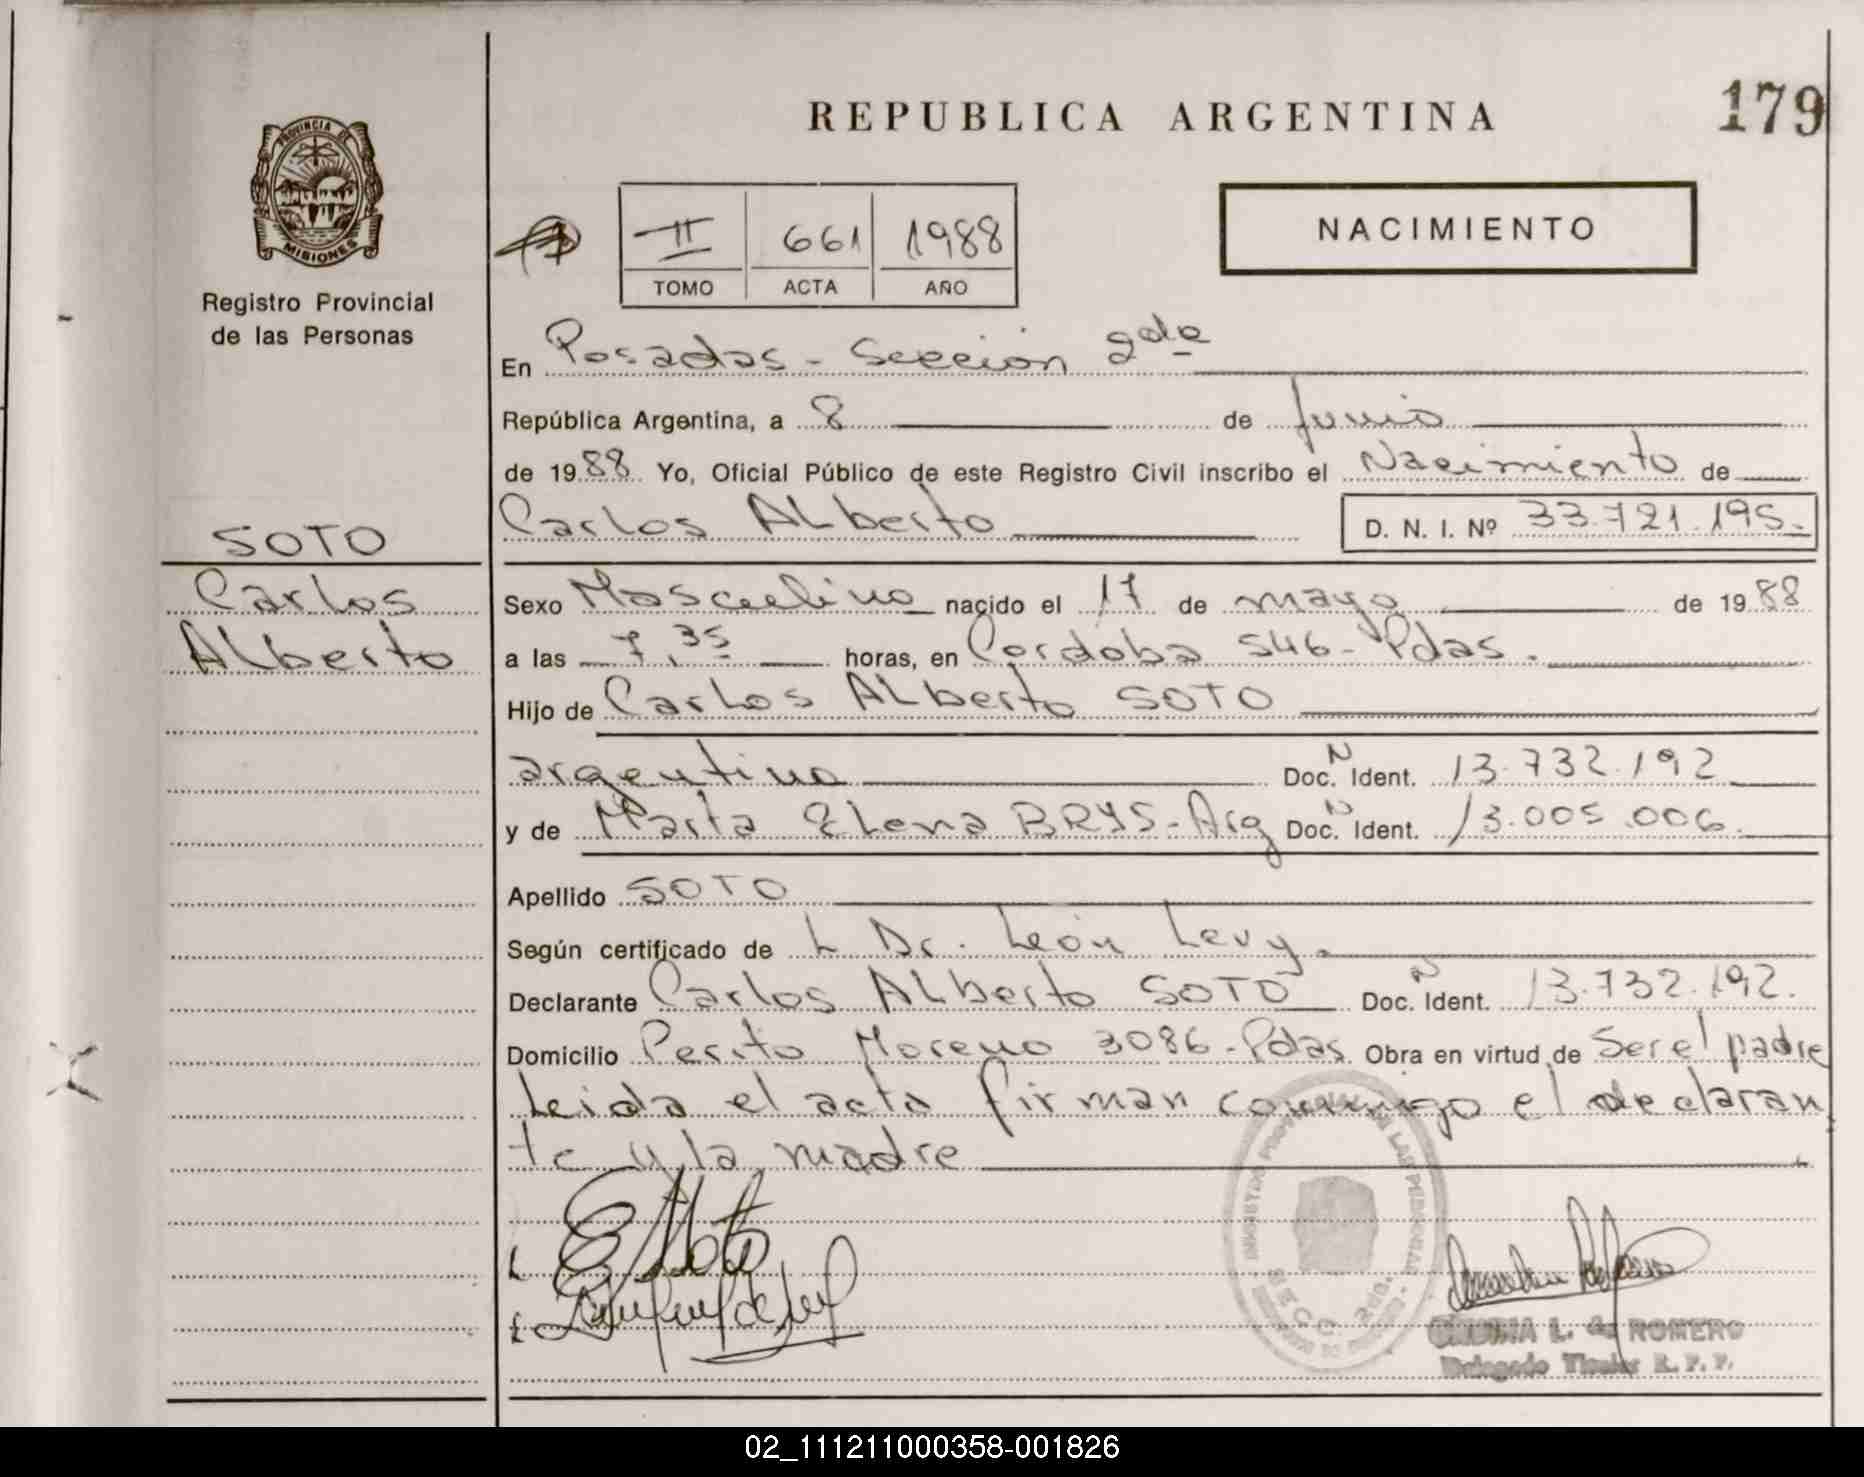 REPUBLICA ARGENTINA
179
PROVINCIA DE
MISIONES
Registro Provincial
de las Personas
II 661 1988
TOMO ACTA AÑO
NACIMIENTO
En Posadas - Sección 2da
República Argentina, a 8 de Junio
de 1988 Yo, Oficial Público de este Registro Civil inscribo el Nacimiento de
Carlos Alberto D. N. I. Nº 33.721.195.
SOTO
Carlos
Alberto
Sexo Masculino nacido el 17 de mayo de 1988
a las 7,35 horas, en Cordoba 546 - Pdas.
Hijo de Carlos Alberto SOTO
argentino Doc. N Ident. 13.732.192
y de Marta Elena BRYS - Arg Doc. N Ident. 13.005.006.
Apellido SOTO
Según certificado de L Dr. León Levy.
Declarante Carlos Alberto SOTO Doc. N Ident. 13.732.192.
Domicilio Perito Moreno 3086 - Pdas. Obra en virtud de Ser el padre
Leida el acta firman conmigo el declaran
te y la madre
SECC. 2da.
L. de ROMERO
Delegado Titular R. P. P.
02_111211000358-001826